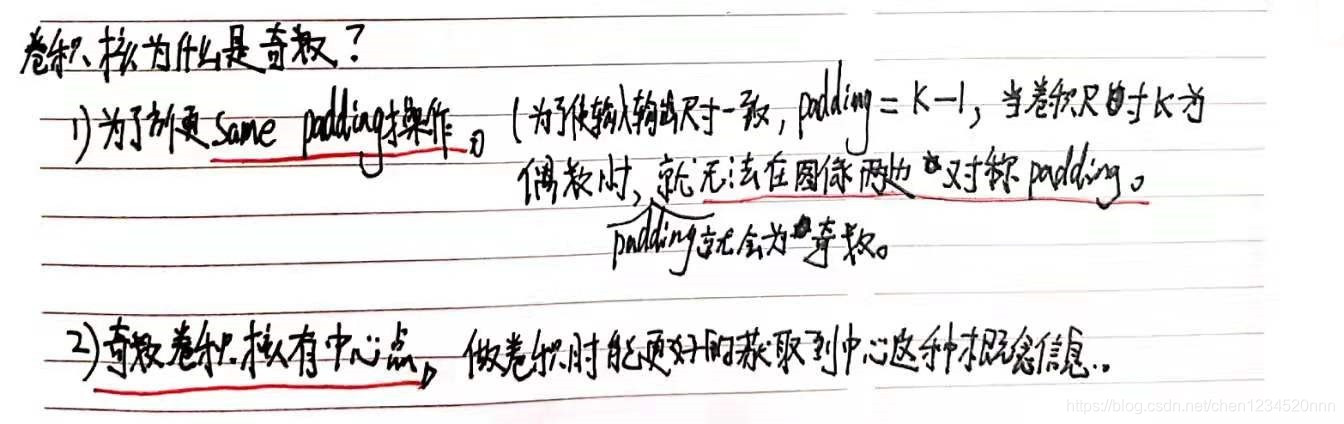 卷积核为什么是奇数?
1)为了方便same padding操作。(为了使输入输出尺寸一致,padding=K-1,当卷积尺寸K为
偶数时,就无法在图像两边对称padding。
padding就会为奇数。
2)奇数卷积核有中心点,做卷积时能更好的获取到中心这种概念信息..
https://blog.csdn.net/chen1234520nnn